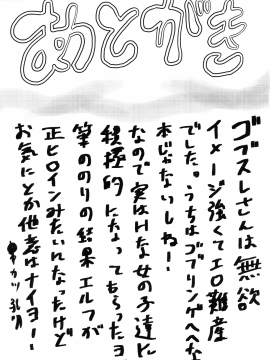 あとがき
ゴブスレさんは無欲
イメージ強くてエロ難産
でした。うちはゴブリンゲヘヘな
本じゃないしねー!
なので実はHな女の子達に
積極的になってもらったョ
筆ののりの結果 エルフが
正ヒロインみたいんなったけど
お気にとか他意はナイヨー!